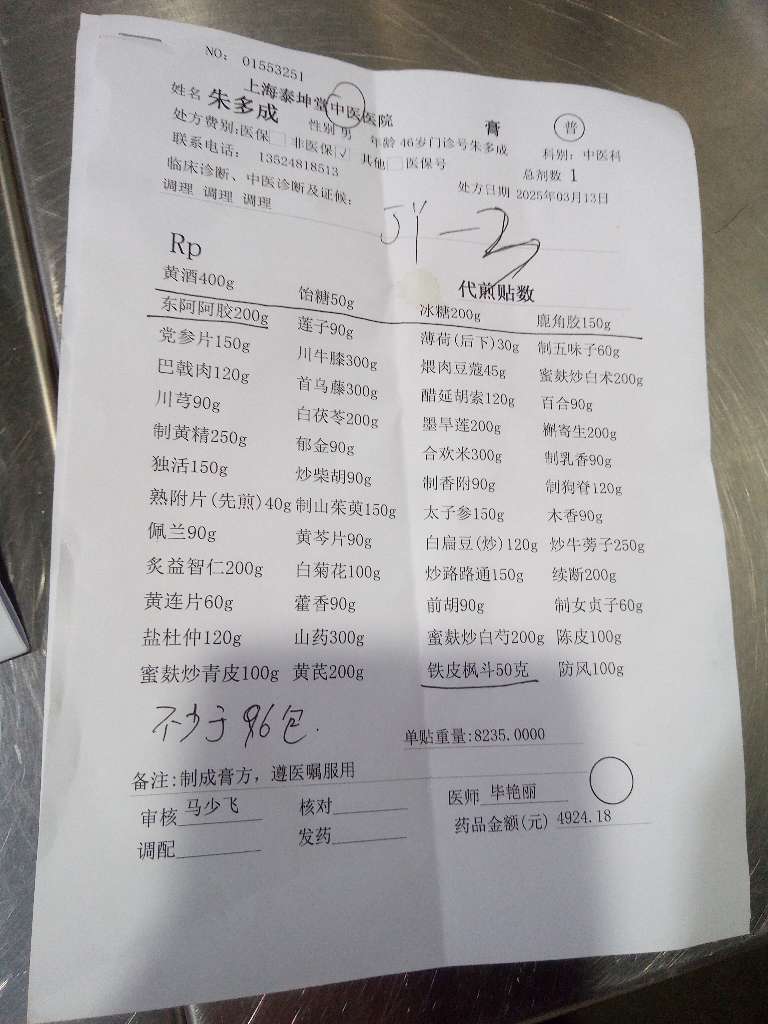 NO: 01553251
上海泰坤堂中医医院 膏 普
姓名 朱多成 性别 男 年龄 46岁 门诊号 朱多成 科别: 中医科
处方费别: 医保□ 非医保☑ 其他□ 医保号 总剂数 1
联系电话: 13524818513 处方日期 2025年03月13日
临床诊断、中医诊断及证候:
调理 调理 调理
Rp 代煎贴数
黄酒400g 饴糖50g 冰糖200g 鹿角胶150g
东阿阿胶200g 莲子90g 薄荷(后下)30g 制五味子60g
党参片150g 川牛膝300g 煨肉豆蔻45g 蜜麸炒白术200g
巴戟肉120g 首乌藤300g 醋延胡索120g 百合90g
川芎90g 白茯苓200g 墨旱莲200g 槲寄生200g
制黄精250g 郁金90g 合欢米300g 制乳香90g
独活150g 炒柴胡90g 制香附90g 制狗脊120g
熟附片(先煎)40g 制山茱萸150g 太子参150g 木香90g
佩兰90g 黄芩片90g 白扁豆(炒)120g 炒牛蒡子250g
炙益智仁200g 白菊花100g 炒路路通150g 续断200g
黄连片60g 藿香90g 前胡90g 制女贞子60g
盐杜仲120g 山药300g 蜜麸炒白芍200g 陈皮100g
蜜麸炒青皮100g 黄芪200g 铁皮枫斗50克 防风100g
不少于96包.
单贴重量:8235.0000
备注:制成膏方，遵医嘱服用
审核 马少飞 核对 医师 毕艳丽
调配 发药 药品金额(元) 4924.18